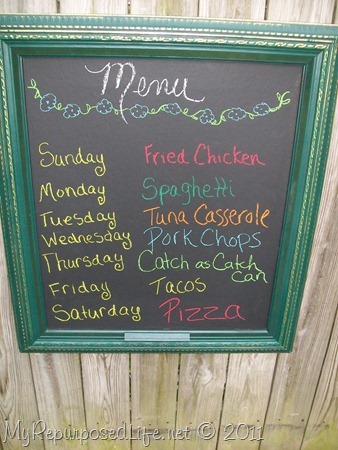 Menu
Sunday Fried Chicken
Monday Spaghetti
Tuesday Tuna Casserole
Wednesday Pork Chops
Thursday Catch as Catch
can
Friday Tacos
Saturday Pizza
MyRepurposedLife.net © 2011